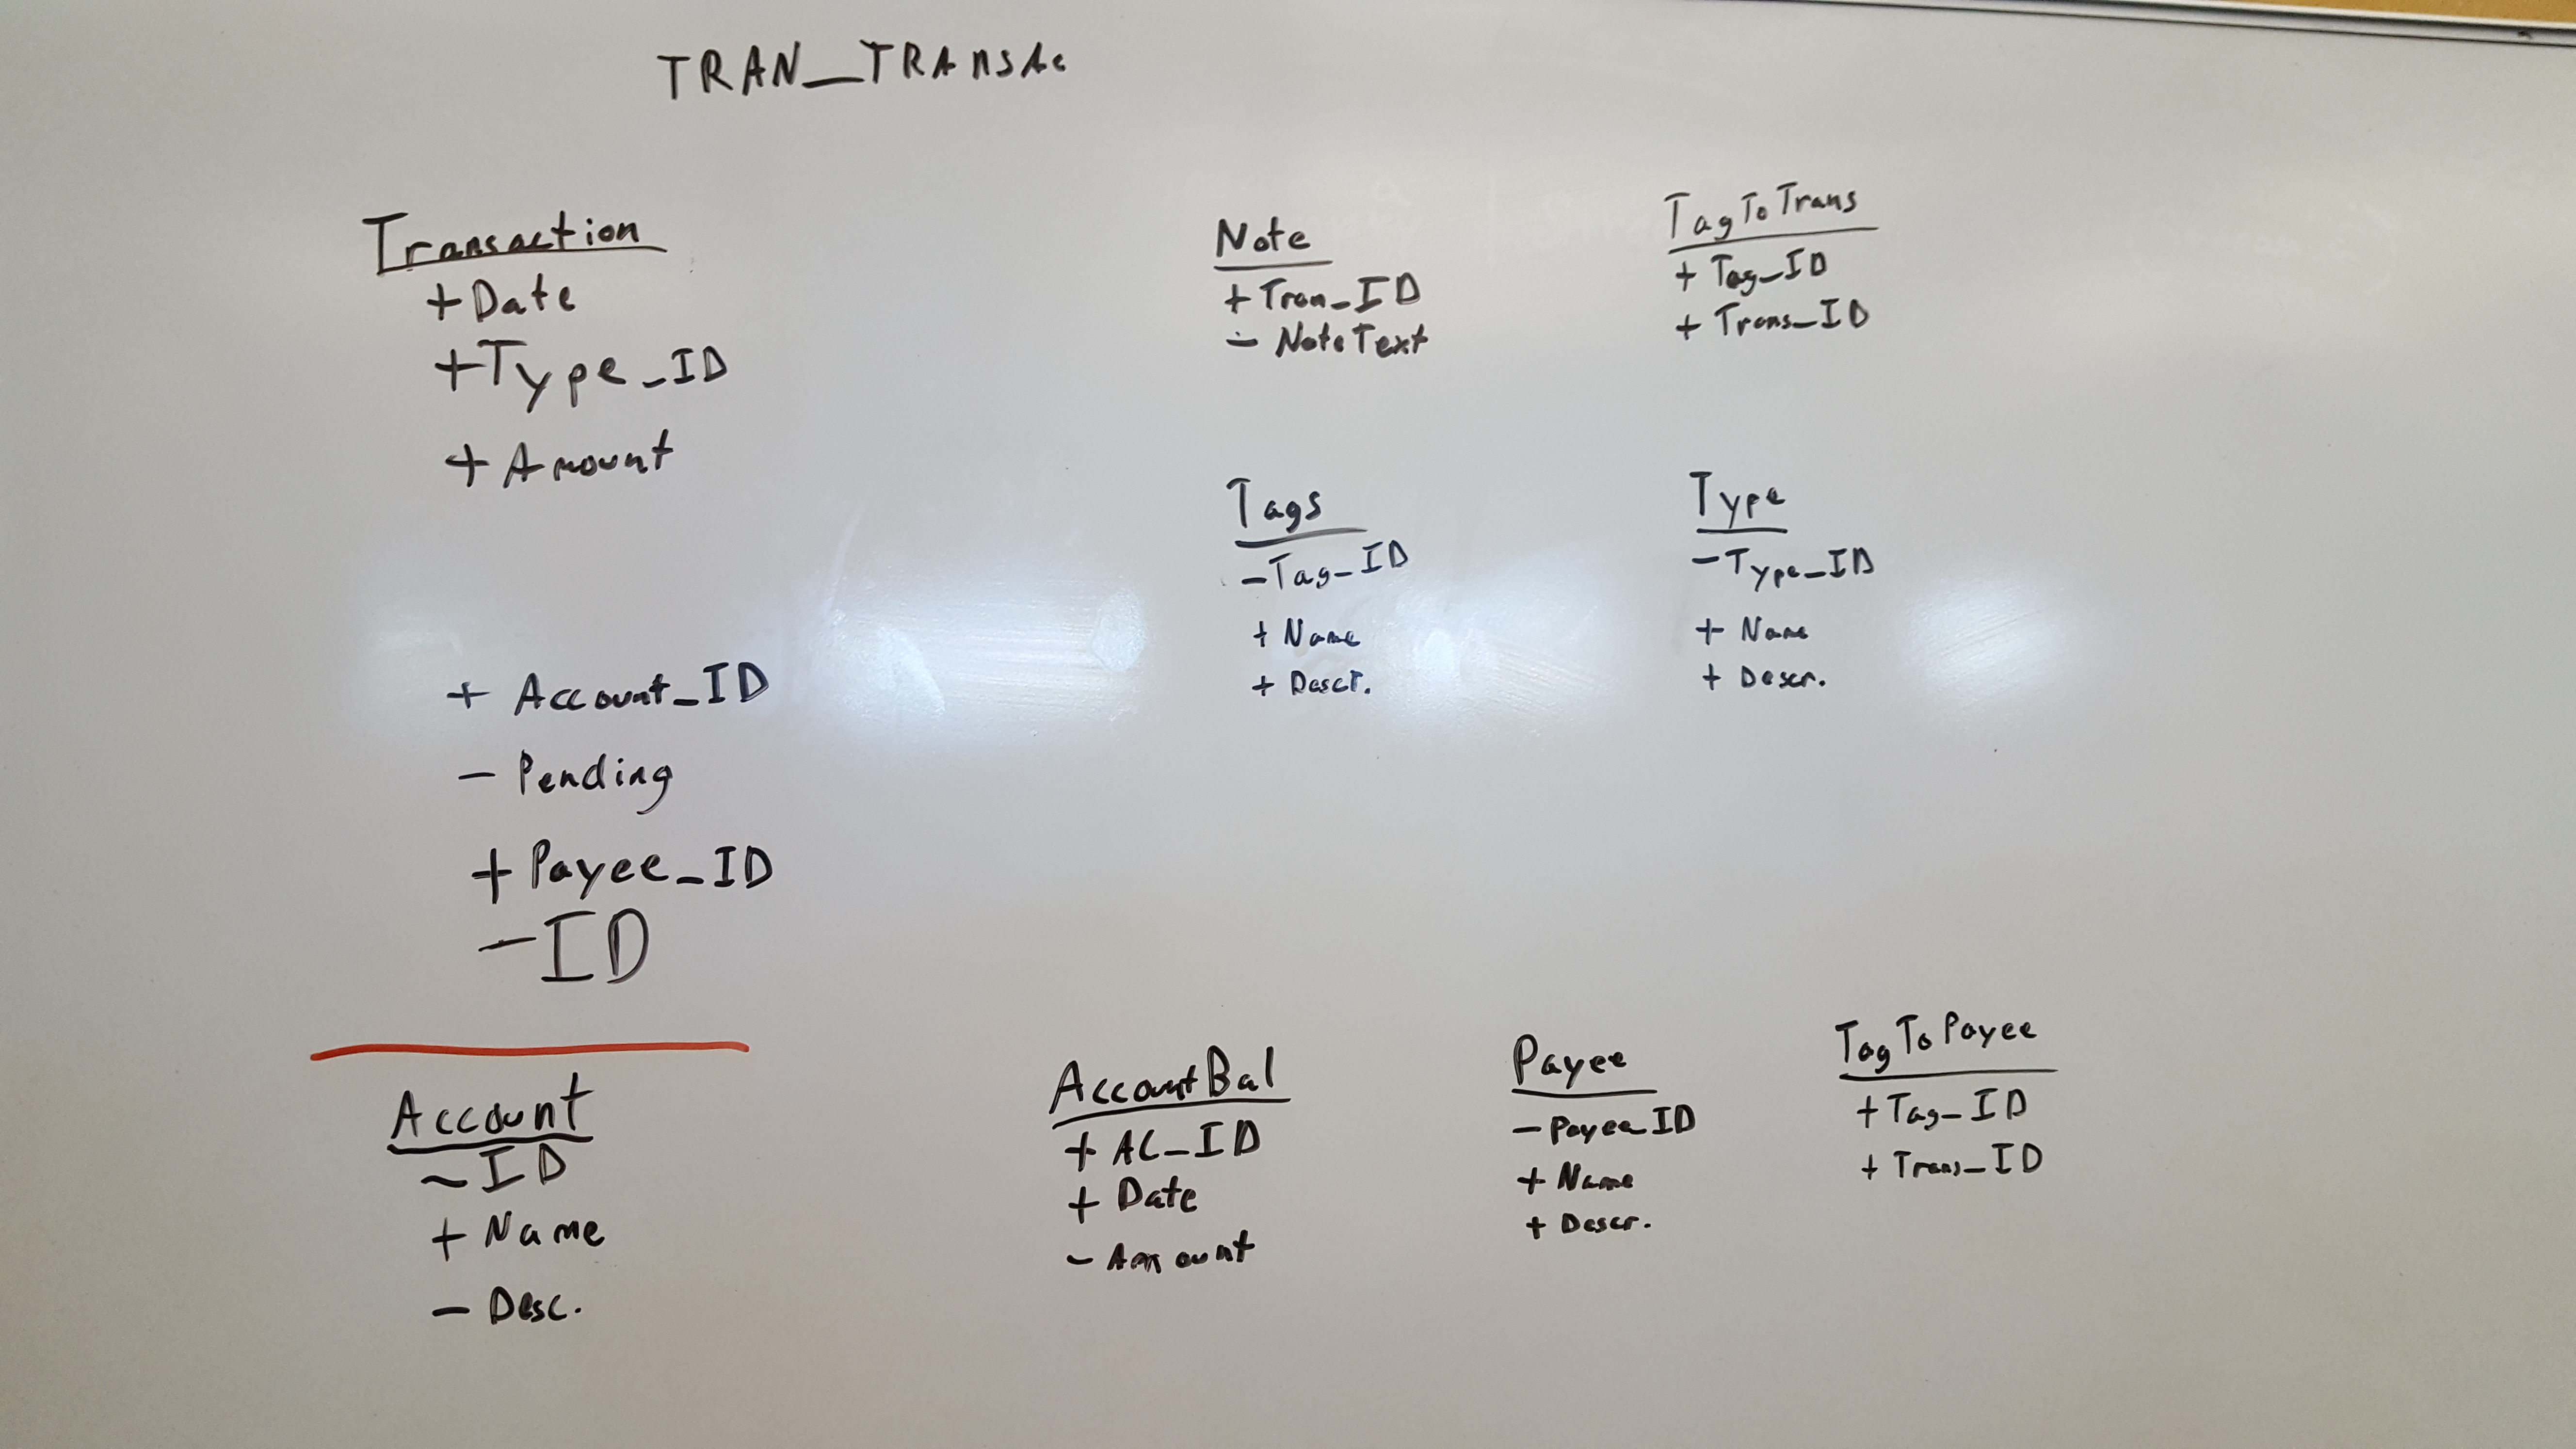 TRAN_TRAnsAc
Transaction
+Date
+Type_ID
+ Amount
+ Account_ID
- Pending
+ Payee_ID
-ID
Note
+ Tran_ID
- NoteText
TagToTrans
+ Tag_ID
+ Trans_ID
Tags
- Tag_ID
+ Name
+ Descr.
Type
- Type_ID
+ Name
+ Descr.
Account
~ ID
+ Name
- Desc.
AccountBal
+ AC_ID
+ Date
- Amount
Payee
- Payee_ID
+ Name
+ Descr.
TagToPayee
+ Tag_ID
+ Trans_ID